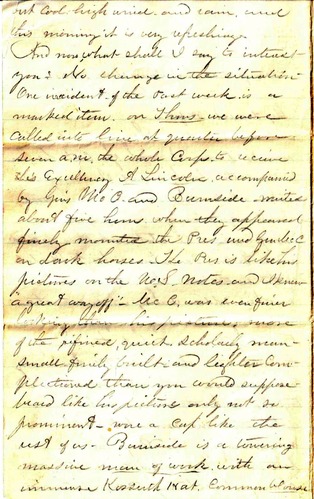 but cool high wind and rain, and
this morning it is very refreshing.
And now what shall I say to interest
you? No change in the situation
One incident of the past week is a
marked item. on Thurs we were
called into line at quarter before
seven a.m. the whole Corps to receive
his Excellency A Lincoln accompanied
by Gens McC. and Burnside - waited
about five hours when they appeared
finely mounted the Pres and Gen McC
on dark horses. The Pres is like his
pictures on the U.S. Notes and I knew
a great way off - McC. was even finer
looking than his pictures more
of the refined, quiet, scholarly man -
small finely built and lighter com-
plectioned than you would suppose
beard like his picture only not so
prominent - wore a cap like the
rest of us - Burnside is a towering
massive man of work, with an
immense Kossuth Hat. Common blouse